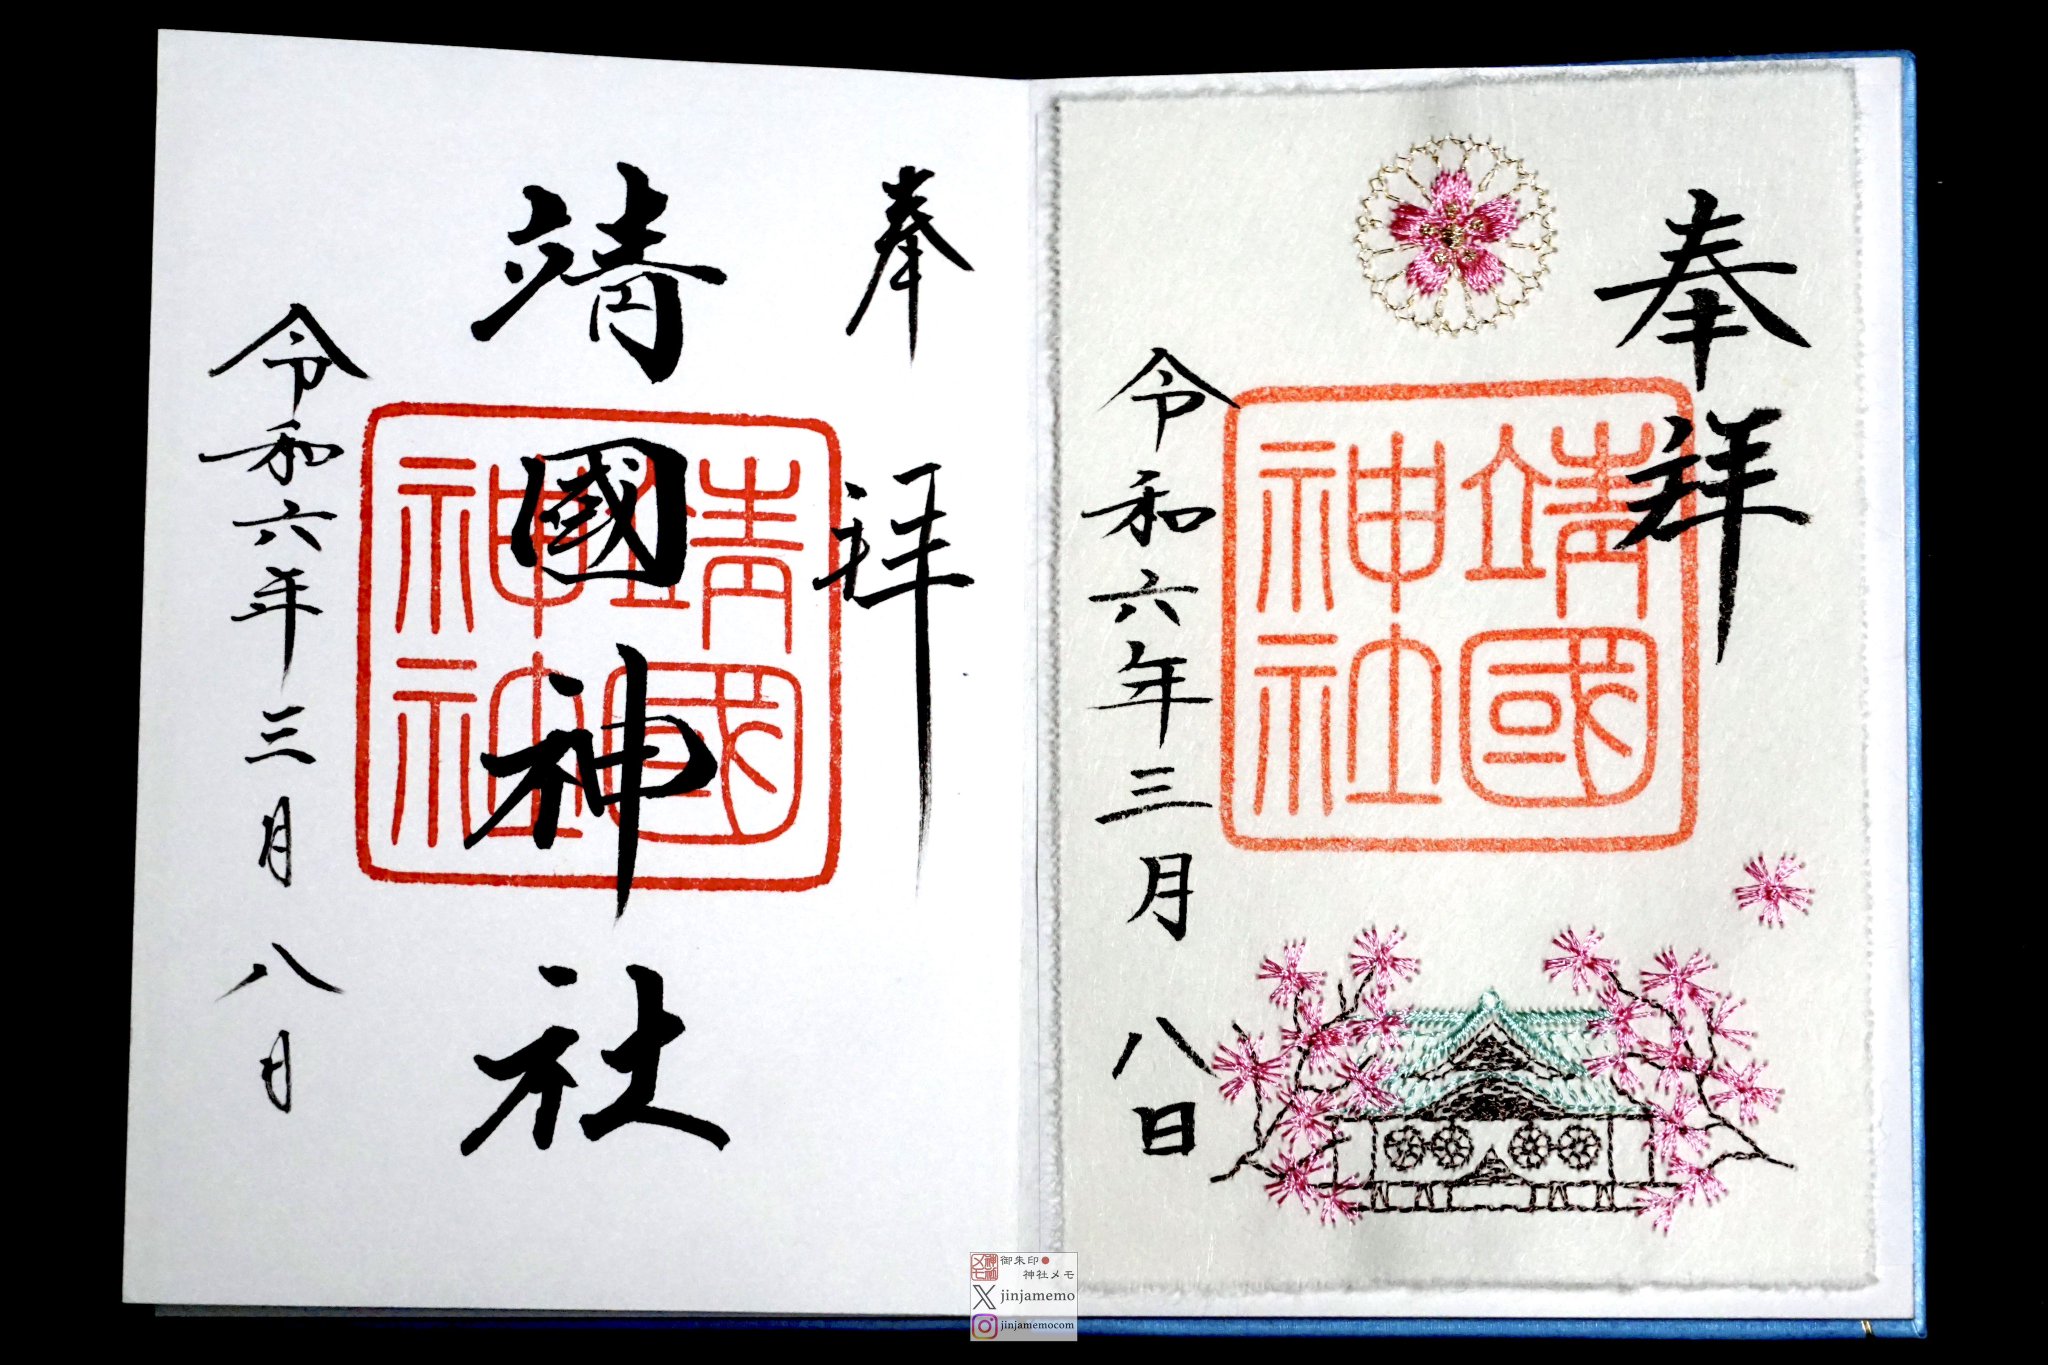 奉拝
靖國神社
令和六年三月八日
靖國神社
奉拝
令和六年三月八日
靖國神社
神社メモ
御朱印●
神社メモ
jinjamemo
jinjamemocom